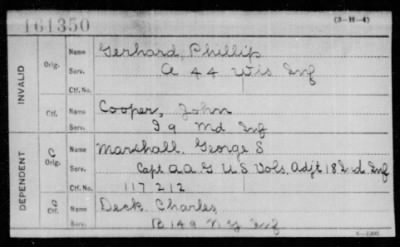 161350
(3-H-4)
INVALID
Orig.
Name Gerhard, Phillip
Serv. A 44 Wis Inf
Ctf. No.
Ctf.
Name Cooper, John
Serv. I 9 Md Inf
DEPENDENT
C Orig.
Name Marshall, George S
Serv. Capt. a.a.G U S Vols. Adjt 18 Ind Inf
Ctf. No. 117212
C Ctf.
Name Deck, Charles
Serv. B 149 N Y Inf